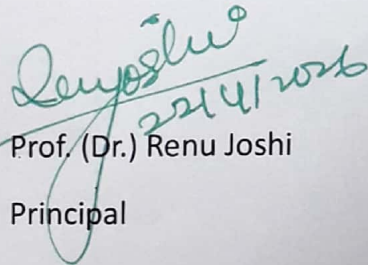 Renujoshi
22/4/2026
Prof. (Dr.) Renu Joshi
Principal